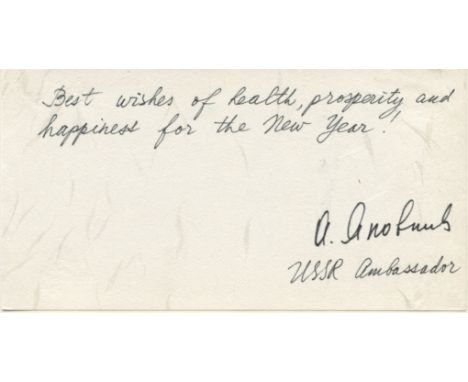 Best wishes of health, prosperity and
happiness for the New Year!
A.
USSR Ambassador